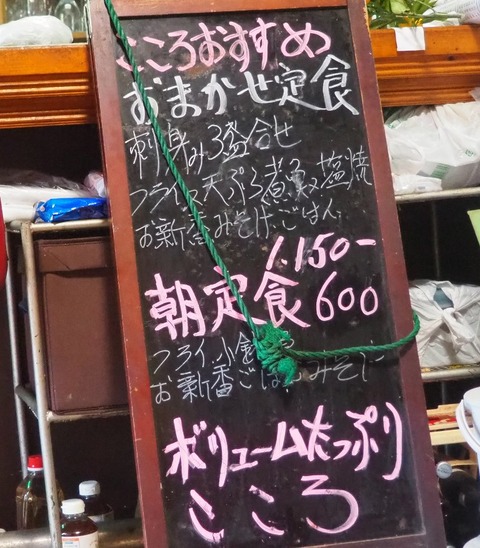 こころおすすめ
おまかせ定食
刺身み3盛合せ
フライ又天ぷら煮又塩焼
お新香みそ汁ごはん
1.150-
朝定食600
フライ、小
お新香ごはんみそ汁
ボリュームたっぷり
こころ